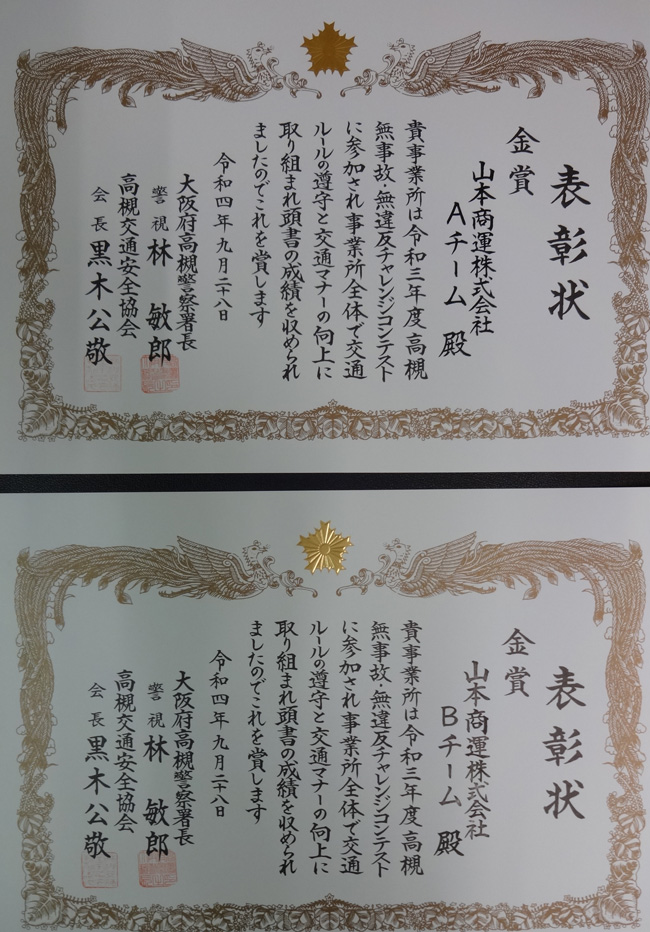 表彰状
金賞
山本商運株式会社
Aチーム 殿
貴事業所は令和三年度高槻
無事故・無違反チャレンジコンテスト
に参加され事業所全体で交通
ルールの遵守と交通マナーの向上に
取り組まれ頭書の成績を収められ
ましたのでこれを賞します
令和四年九月二十八日
大阪府高槻警察署長
警視 林 敏郎
高槻交通安全協会
会長 黒木公敬
表彰状
金賞
山本商運株式会社
Bチーム 殿
貴事業所は令和三年度高槻
無事故・無違反チャレンジコンテスト
に参加され事業所全体で交通
ルールの遵守と交通マナーの向上に
取り組まれ頭書の成績を収められ
ましたのでこれを賞します
令和四年九月二十八日
大阪府高槻警察署長
警視 林 敏郎
高槻交通安全協会
会長 黒木公敬